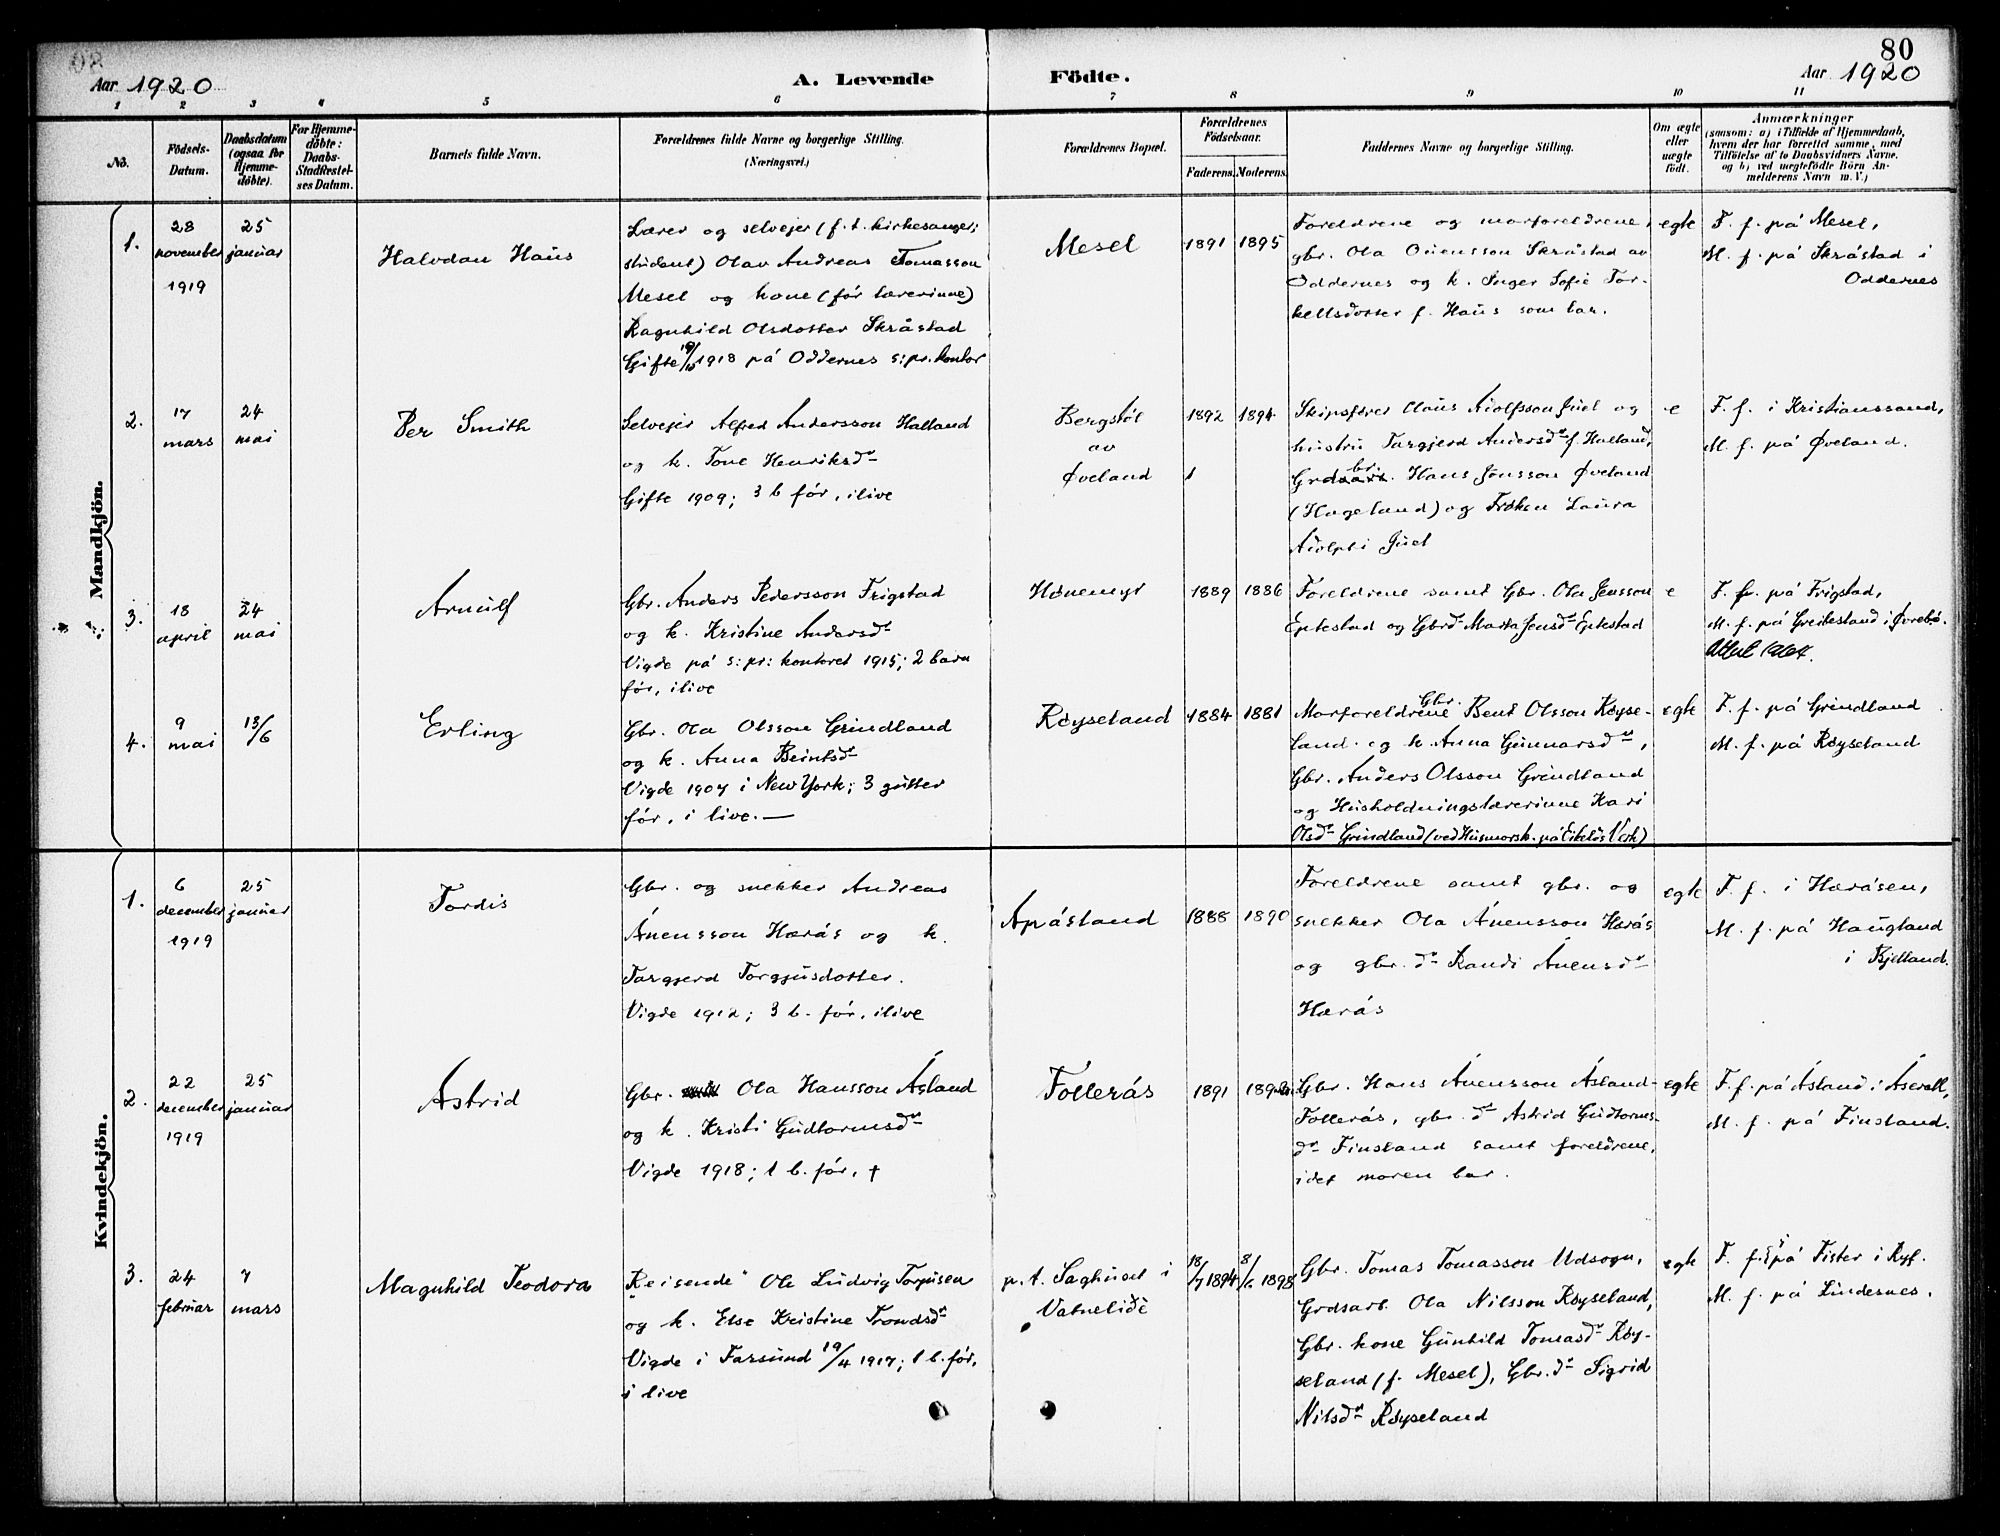 80
Aar 1920
A. Levende Födte.
Aar 1920
1 2 3 4 5 6 7 8 9 10 11
No.
Födsels-
Datum.
Daabsdatum
(ogsaa for
Hjemme-
døbte).
For Hjemme-
døbte:
Daabs-
Stadfæstel-
ses Datum.
Barnets fulde Navn.
Forældrenes fulde Navne og borgerlige Stilling.
(Næringsvei.)
Forældrenes Bopæl.
Forældrenes
Födselsaar.
Faderens. Moderens.
Faddernes Navne og borgerlige Stilling.
Om ægte
eller
uægte
födt.
Anmærkninger
(saasom: a) i Tilfælde af Hjemmedaab,
hvem der har forrettet samme, med
Tilföielse af to Daabsvidners Navne.
og b) ved uægtefödte Börn An-
melderens Navn m. V.)
Mandkjön.
1.
28
november
1919
25
januar
Halvdan Haus
Lærer og selvejer (f. t. kirkesanger;
student) Olav Andreas Tomasson
Mesel og kone (før lærerinne)
Ragnhild Olsdotter Skråstad
Gifte 1918 på Oddernes s:pr. kontor
Mesel
1891
1895
Foreldrene og morforeldrene,
gbr. Ola Ouensson Skråstad av
Oddernes og k. Inger Sofie Tor-
kellsdotter f. Haus som bar.
egte
F. f. på Mesel,
M. f. på Skråstad i
Oddernes
2.
17
mars
24
mai
Per Smith
Selvejer Alfred Andersson Halland
og k. Tone Henriksd
Gifte 1909; 3 b før, ilive
Bergstøl
av
Øveland
1892
1894
Skipsfører Claus Adolfsson Juel og
hustru Targjerd Andersd f. Halland,
Grdbr. Hans Jonsson Øveland
(Hageland) og Frøken Laura
Adolphi Juel
e
F. f. i Kristianssand,
M. f. på Øveland.
3.
18
april
24
mai
Arnulf
Gbr. Anders Pedersson Frigstad
og k. Kristine Andersd
Vigde på s:pr: kontoret 1915; 2 barn
før, ilive
Hønemyr
1889
1886
Foreldrene samt Gbr. Ola Jensson
Eptestad og Gbrd Marta Jensd Eptestad
e
F. f. på Frigstad,
M. f. på Greibesland i Øvrebø.
Attest 1964.
4.
9
mai
13/6
Erling
Gbr. Ola Olsson Grindland
og k. Anna Beintsd
Vigde 1907 i New York; 3 gutter
før, i live.—
Røyseland
1884
1881
Morforeldrene Gbr. Bent Olsson Røyse-
land og k. Anna Gunnarsd,
Gbr. Anders Olsson Grindland
og Husholdningslærerinne Kari
Olsd Grindland (ved Husmorsk. på Eikelås Verk)
egte
F. f. på Grindland
M. f. på Røyseland
Kvindekjön.
1.
6
december
1919
25
januar
Tordis
Gbr. og snekker Andreas
Ånensson Hærås og k.
Targjerd Torgjusdotter.
Vigde 1912; 3 b. før, ilive
Apåsland
1888
1890
Foreldrene samt gbr. og
snekker Ola Ånensson Hærås
og gbr. d Randi Ånensd
Hærås
egte
F. f. i Hæråsen,
M. f. på Haugland
i Bjelland.
2.
22
december
1919
25
januar
Åstrid
Gbr. Ola Hansson Åsland
og k. Kristi Gudtormsd
Vigde 1918; 1 b. før, †
Follerås
1891
Gbr. Hans Ånensson Åsland-
Follerås, gbr. d Astrid Gudtorms-
d Finsland samt foreldrene,
idet moren bar.
egte
F. f. på Åsland i Åserall,
M. f. på Finsland.
3.
24
februar
7
mars
Magnhild Teodora
"Reisende" Ole Ludvig Torjusen
og k. Else Kristine Trondsd
Vigde i Farsund 19/4 1917; 1 b. før,
i live
p. t. Saghuset i
Vatnelide
18/7 1894
8/6 1898
Gbr. Tomas Tomasson Udsogn,
Grdsarb. Ola Nilsson Røyseland,
Gbr. kone Gunhild Tomasd Røy-
seland (f. Mesel), Gbr. d Sigrid
Nilsd Røyseland
egte
F. f. på Fister i Ryf.
M. f. på Lindesnes.